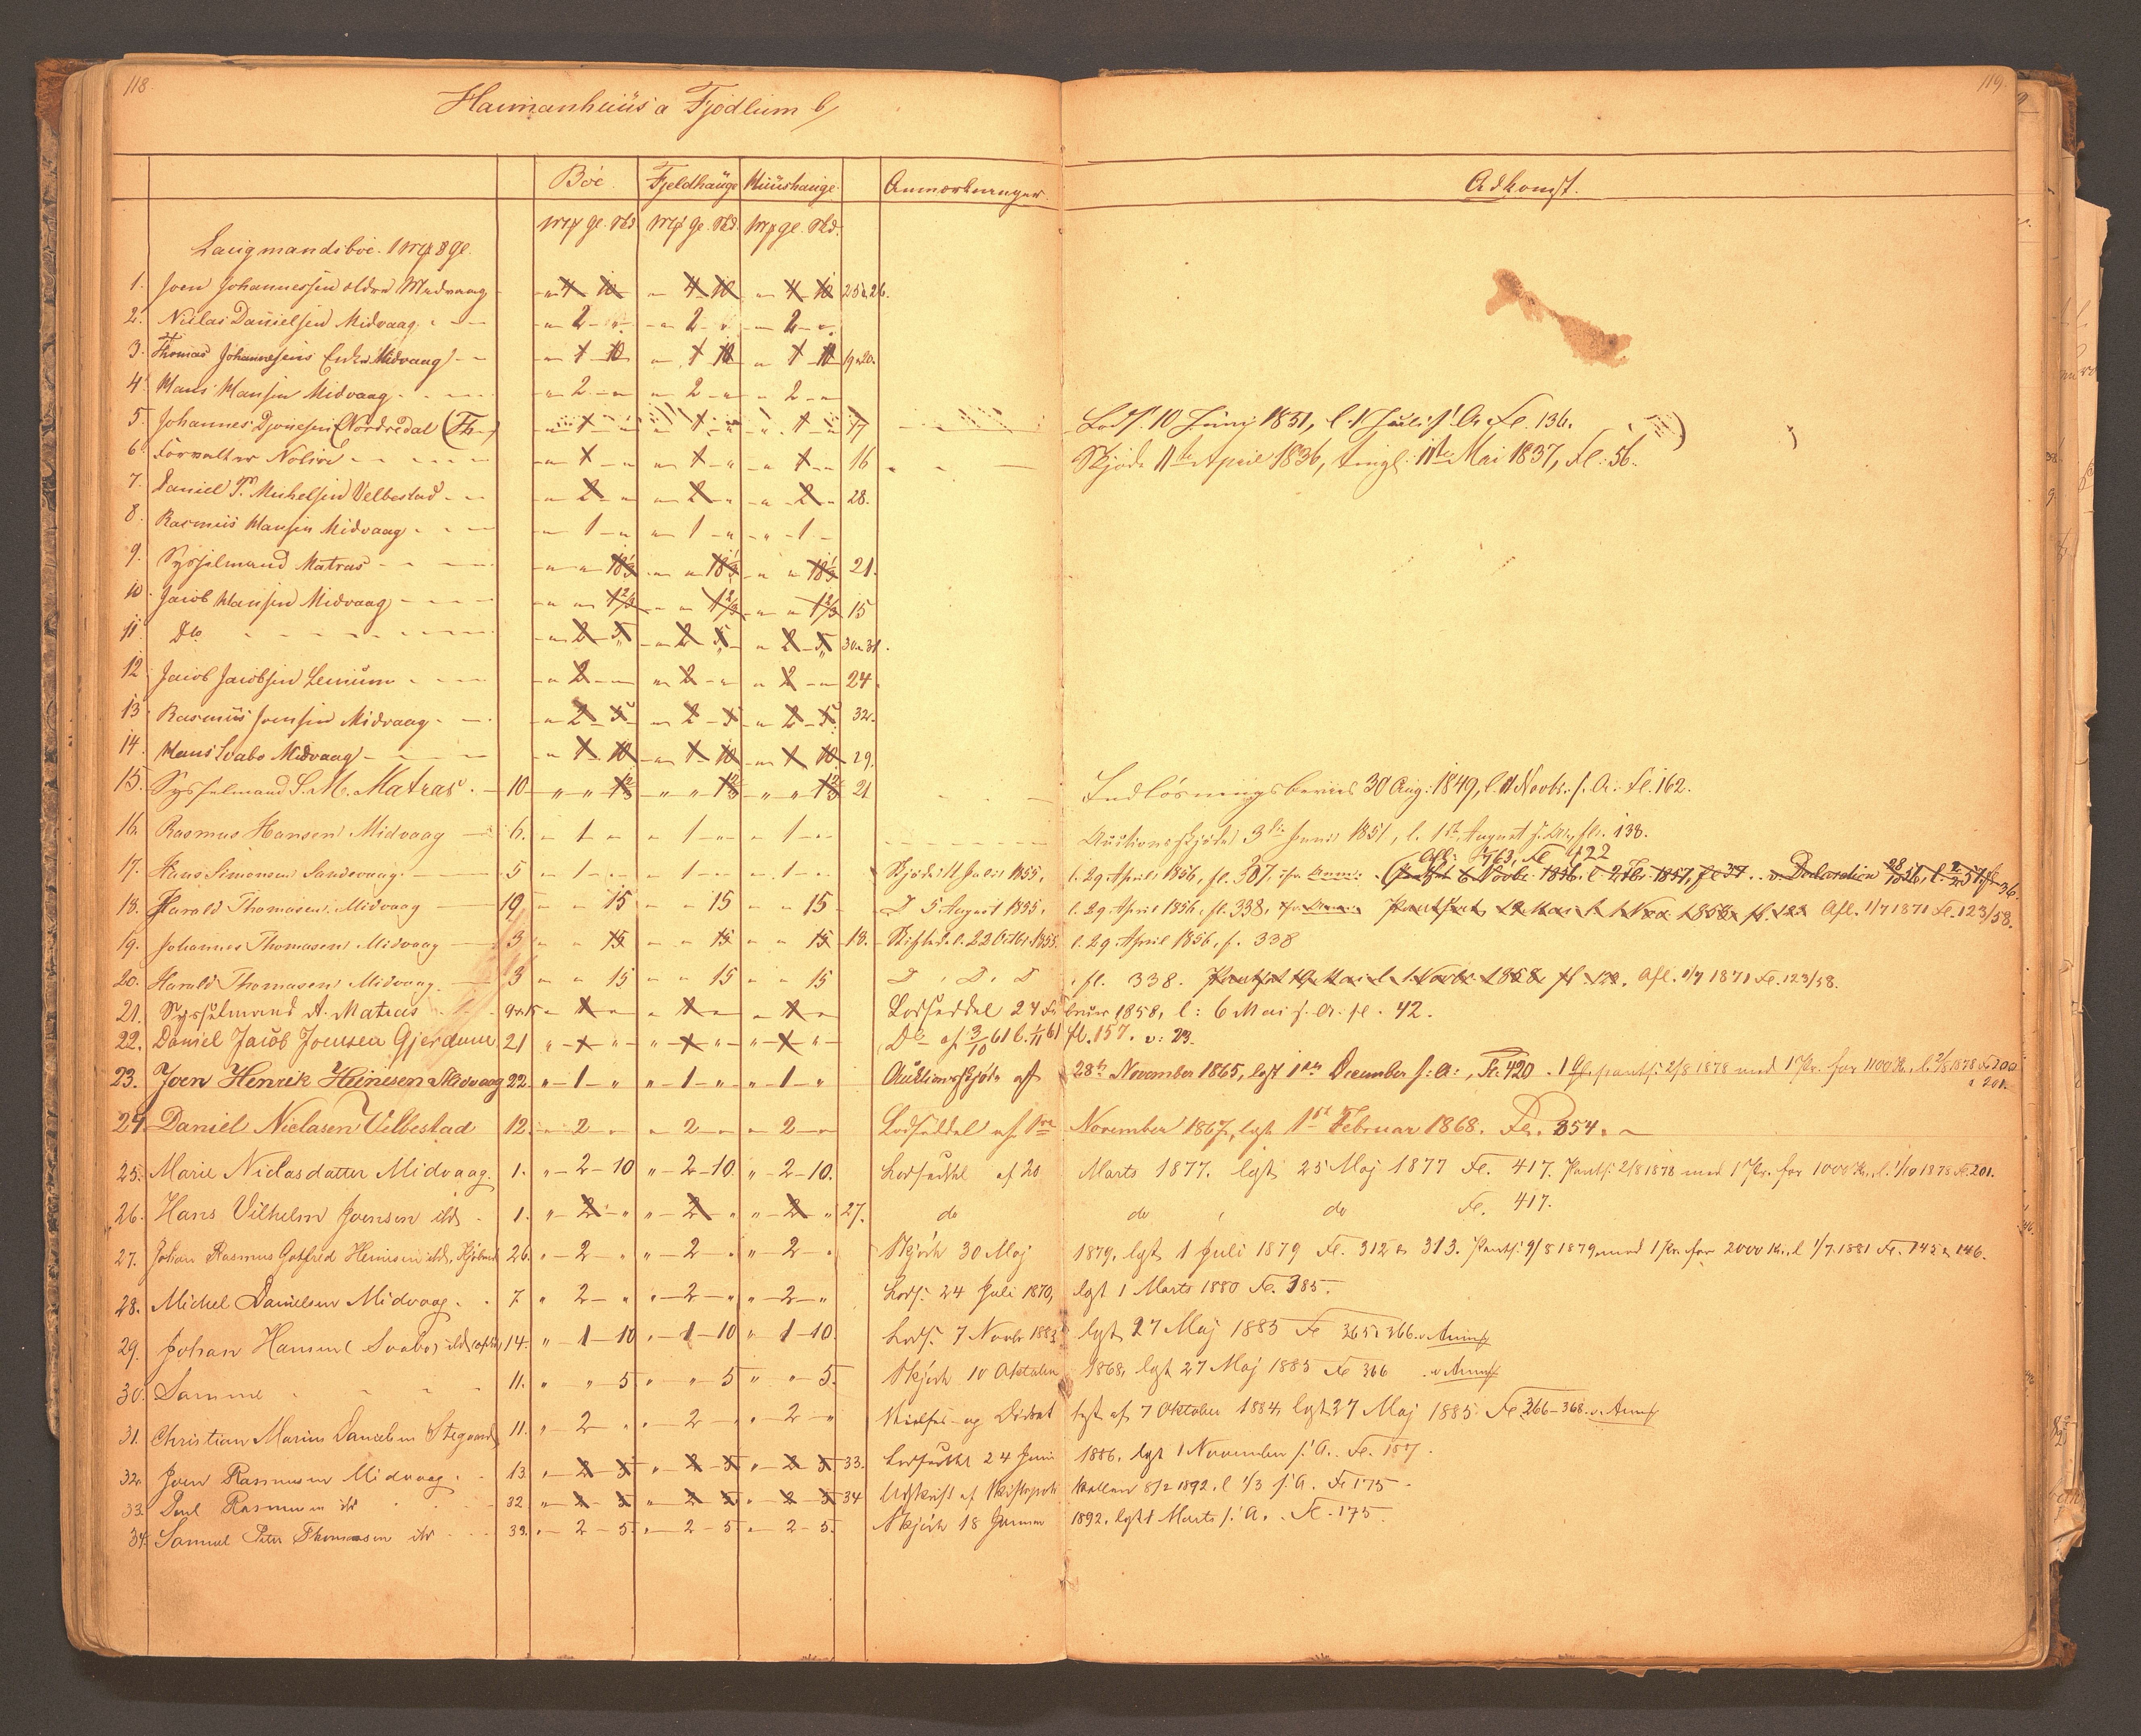 118.
119.
Hamanhuus a Fjødlum b/
Böe. Fjeldhauge Huushauge. Anmærkninger. Adkomst.
Mk gl. Skd. Mk ge. Skd. Mk gl. Skd.
Laugmandsböe. 1 Mk 8 gl.
1. Joen Johannessen ældre Midvaag 4 10 4 10 4 10 25 & 26.
2. Niclas Danielsen Midvaag. 2 2 2
3. Thomas Johannesens Enke Midvaag 1 10 1 10 1 10 19 & 20.
4. Hans Hansen Midvaag 2 2 2
5. Johannes Djonesen Nordredal (Th.) 1 1 1 17 Lods. 10 Junij 1851, l. 1 Juli s. A. Fl. 136.
6. Forvalter Nolsøe 1 1 1 16 Skjøde 11te April 1836, tingl. 11te Mai 1837, Fl. 56.
7. Daniel P. Michelsen Velbestad 2 2 2 28.
8. Rasmus Hansen Midvaag 1 1 1
9. Sysselmand Matras 18⅓ 18⅓ 18⅓ 21.
10. Jacob Hansen Midvaag 1⅔ 1⅔ 1⅔ 15
11. Do 2 5 2 5 2 5 30 & 31.
12. Jacob Jacobsen Leinum 2 2 2 24.
13. Rasmus Joensen Midvaag 2 5 2 5 2 5 32.
14. Hans Svabo Midvaag 1 10 1 10 1 10 29.
15. Sysselmand S. M. Matras 10 21 Indløsningsbeviis 30 Aug. 1849, l. 1 Novbr. s. A. Fl. 162.
16. Rasmus Hansen Midvaag 6. 1 1 1 Auctionsskjøde 3die Juni 1851, l. 1ste August s. A., fl. 138.
Afl. 1763, Fl 422
17. Hans Simonsen Sandevaag 5 1 1 1 Skjøde 11 Juli 1855, l. 29 April 1856, fl. 337,
18. Harald Thomasen Midvaag 19 15 15 15 D 5 August 1855, l. 29 April 1856, fl. 338, Afl. 1/7 1871 Fl. 123/58.
19. Johannes Thomasen Midvaag 3 15 15 15 18. Skifted. l. 22 Octbr. 1855. l. 29 April 1856, f. 338
20. Harald Thomasen Midvaag 3 15 15 15 D. D. D fl. 338. Pantsat 19 Mai l. 1 Novbr. 1858 fl. 122. Afl. 1/7 1871 Fl. 123/58.
21. Sysselmand A. Matras 9 & 15 1 1 1 Lodseddel 24 Februar 1858, l: 6 Mai s. A. fl. 42.
22. Daniel Jacob Joensen Gjerdum 21 1 1 1 Do af 3/10 61 l. 1/11 61 fl. 157. v: 23.
23. Joen Henrik Heinesen Midvaag 22. 1 1 1 Auktionsskjøde af 28de November 1865, lyst 1ste December s: A:, Fl. 420. 1 Gl. pants: 2/8 1878 med 1 Pr. for 1100 Kr.,
& 201.
24. Daniel Niclasen Velbestad 12. 2 2 2 Lodseddel af 1ste November 1867, lyst 1ste Februar 1868. Fl. 354.
25. Marie Niclasdatter Midvaag. 1. 2 10 2 10 2 10. Lodseddel af 20 Marts 1877. lyst 25 Maj 1877 Fl. 417. Pants: 2/8 1878 med 1 Pr. for 1000 Kr., l. 1/10 1878 Fl. 201.
26. Hans Vilhelm Joensen ibd. 1. 2 2 2 27. do do do Fl. 417.
27. Johan Rasmus Gotfred Heinesen ibd. 26. 2 2 2 Skjøde 30 Maj 1879, lyst 1 Juli 1879 Fl. 312 & 313. Pants: 9/8 1879 med 1 Pr. for 2000 Kr., l 1/7 1881 Fl. 145 & 146.
28. Michel Danielsen Midvaag. 7 2 2 2 Lods. 24 Juli 1870, lyst 1 Marts 1880 Fl. 385.
29. Johan Hansen (Svabo) ibd. 14. 1 10 1 10 1 10. Lods. 7 Novbr 1883 lyst 27 Maj 1885 Fl 365 & 366. v. Anm.
30. Samme 11. 5 5 5. Skjøde 10 Oktober 1868, lyst 27 Maj 1885 Fl 366 v. Anm.
31. Christian Marius Danielsen Stegaard 11. 2 2 2 Skifte- og af 7 Oktober 1884, lyst 27 Maj 1885 Fl. 366-368. v. Anm.
32. Joen Rasmussen Midvaag. 13. 2 5 2 5 2 5 33. Lodseddel 24 Juni 1886, lyst 1 November s. A. Fl. 187.
33. Poul Rasmussen ibd 32. 2 5 2 5 2 5 34 Udskrift af Skifteprotokollen 8/2 1892, l 1/3 s. A. Fl 175.
34. Samuel Peter Thomassen ibd 33. 2 5. 2 5. 2 5. Skjøde 18 Januar 1892. lyst 1 Marts s. A. Fl. 175.